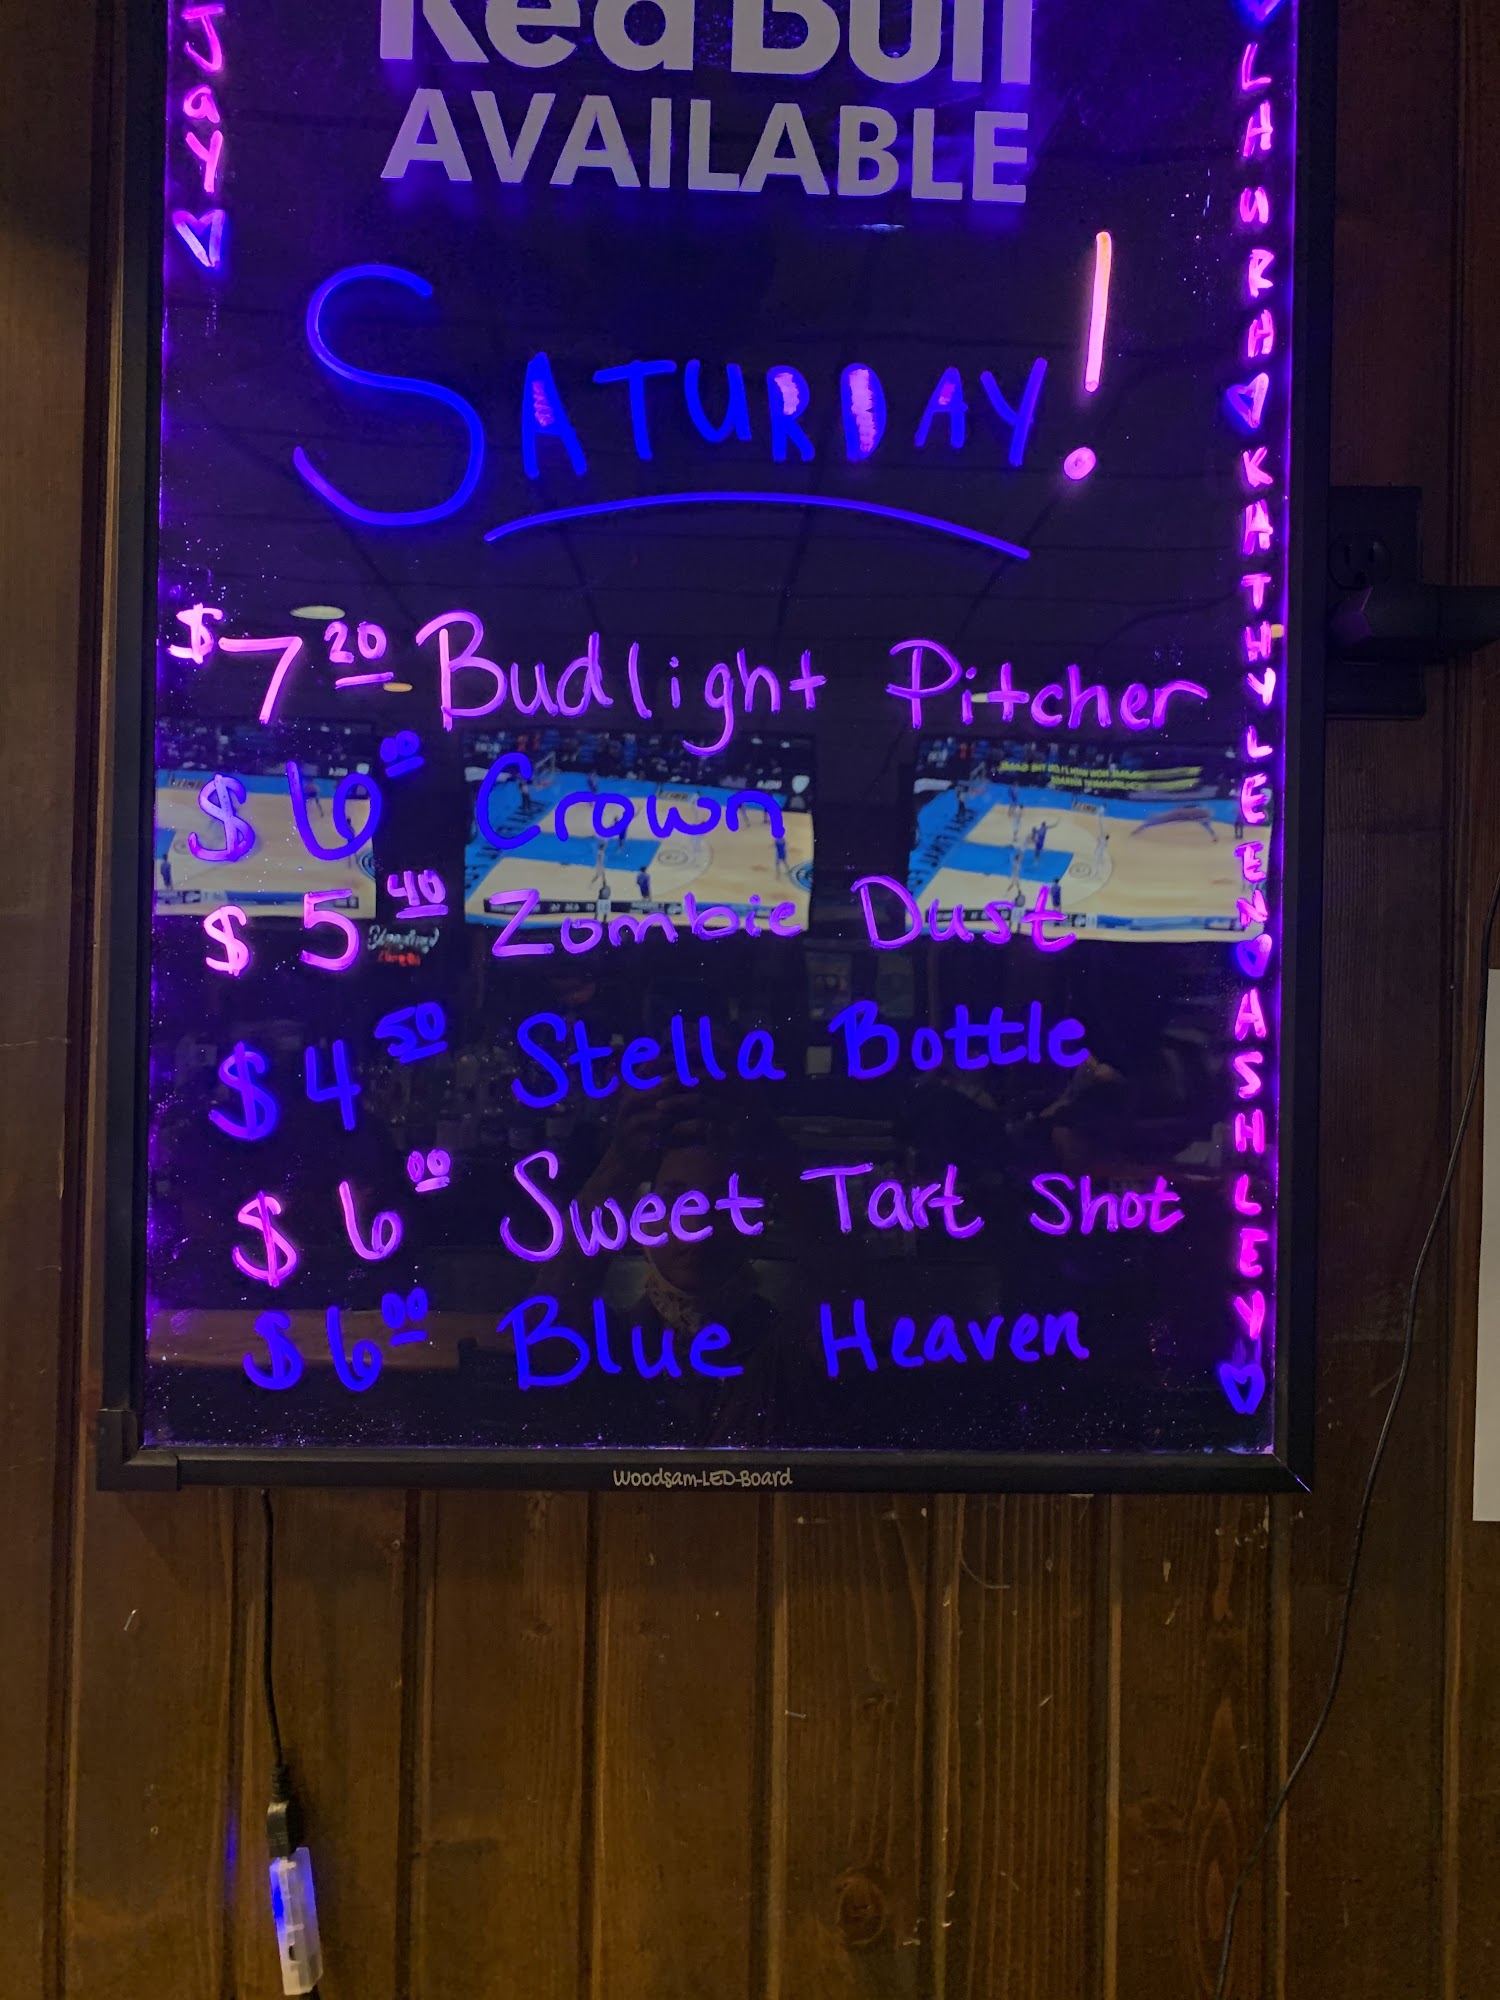 Red Bull
AVAILABLE
Jay
SATURDAY!
$7 20 Budlight Pitcher
$6 00 Crown
$5 40 Zombie Dust
$4 50 Stella Bottle
$6 00 Sweet Tart Shot
$6 00 Blue Heaven
LAURA KATHYLEEN ASHLEY
Woodsam-LED-Board